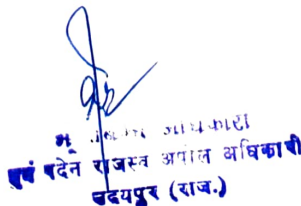 भू
एवं पदेन राजस्व अपील अधिकारी
उदयपुर (राज.)